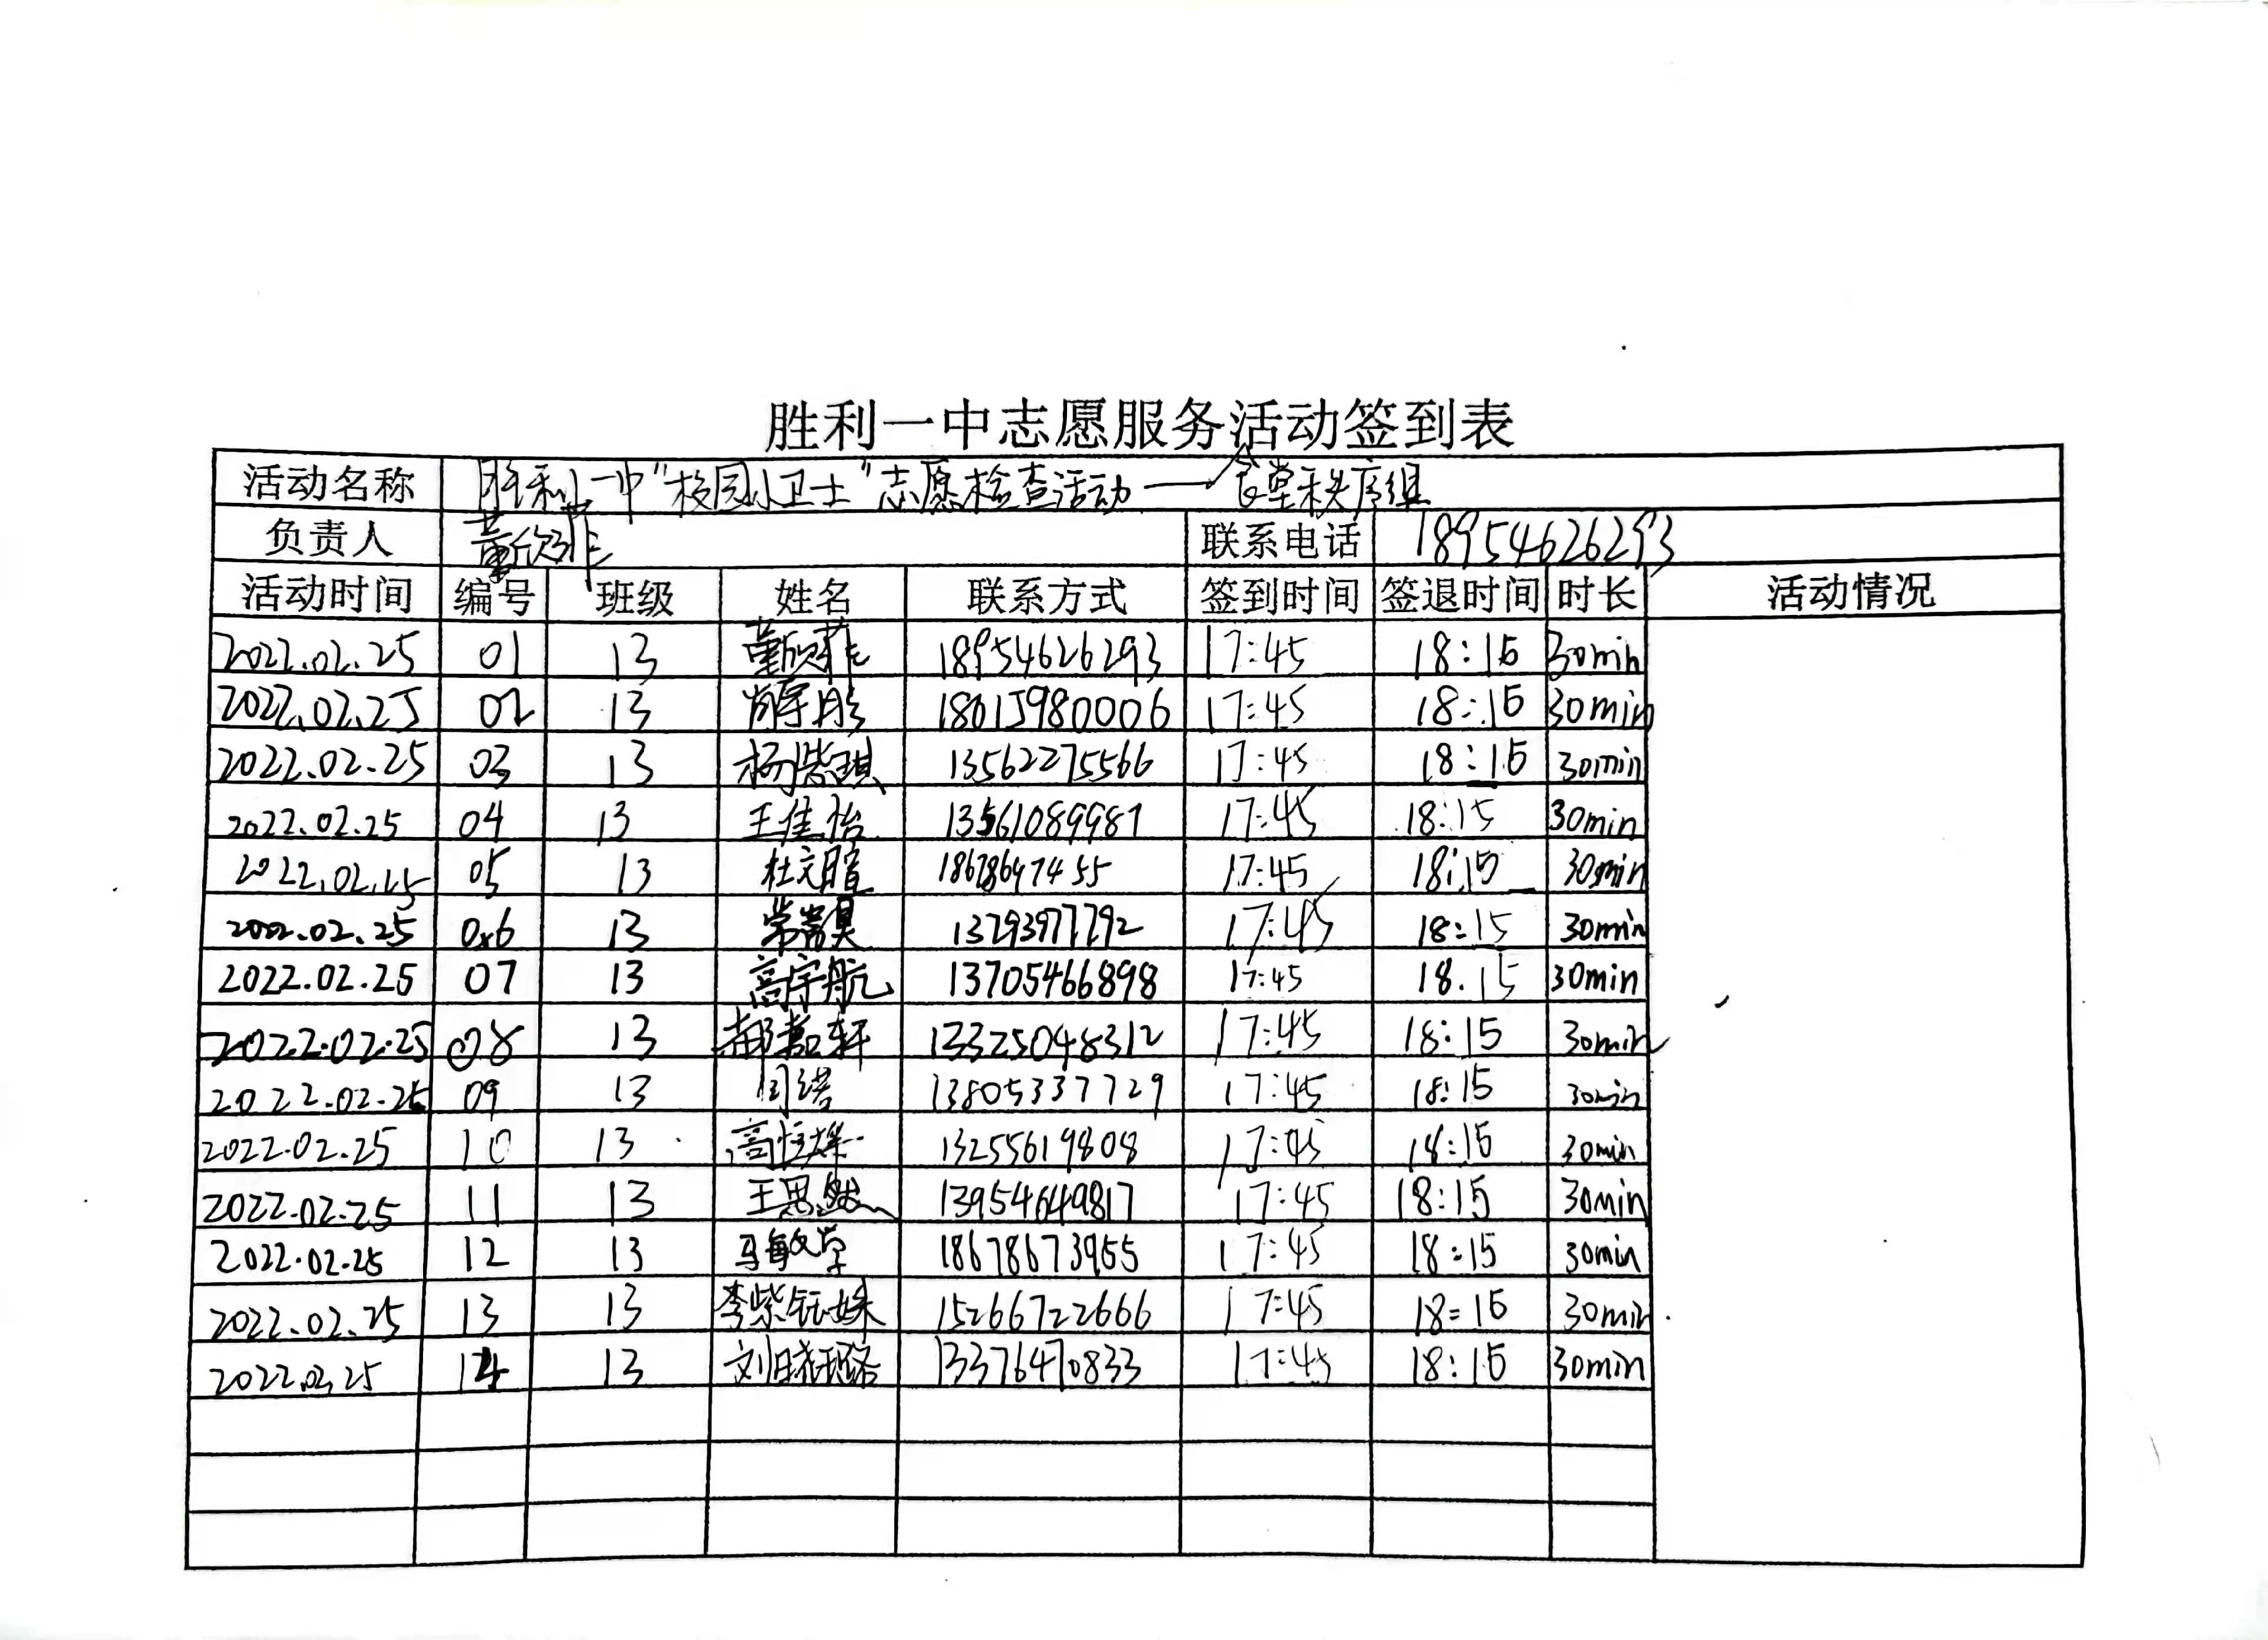 胜利一中志愿服务活动签到表
活动名称 胜利一中"校园小卫士"志愿检查活动——食堂秩序组
负责人 董欣菲 联系电话 18954626293
活动时间 编号 班级 姓名 联系方式 签到时间 签退时间 时长 活动情况
2022.02.25 01 13 董欣菲 18954626293 17:45 18:15 30min
2022.02.25 02 13 18615980006 17:45 18:15 30min
2022.02.25 03 13 杨紫琪 13562275566 17:45 18:15 30min
2022.02.25 04 13 王佳怡 13561089987 17:45 18:15 30min
2022.02.25 05 13 杜文暄 18678647455 17:45 18:15 30min
2022.02.25 06 13 13793977792 17:45 18:15 30min
2022.02.25 07 13 高宇航 13705466898 17:45 18.15 30min
2022.02.25 08 13 郝嘉轩 13325048312 17:45 18:15 30min
2022.02.25 09 13 13805337729 17:45 18:15 30min
2022.02.25 10 13 高恒烨 13255619808 17:45 18:15 30min
2022.02.25 11 13 王思然 13954649817 17:45 18:15 30min
2022.02.25 12 13 马敏学 18678673955 17:45 18:15 30min
2022.02.25 13 13 李紫钰姝 15266722666 17:45 18:15 30min
2022.02.25 14 13 刘晓璐 13376470833 17:45 18:15 30min